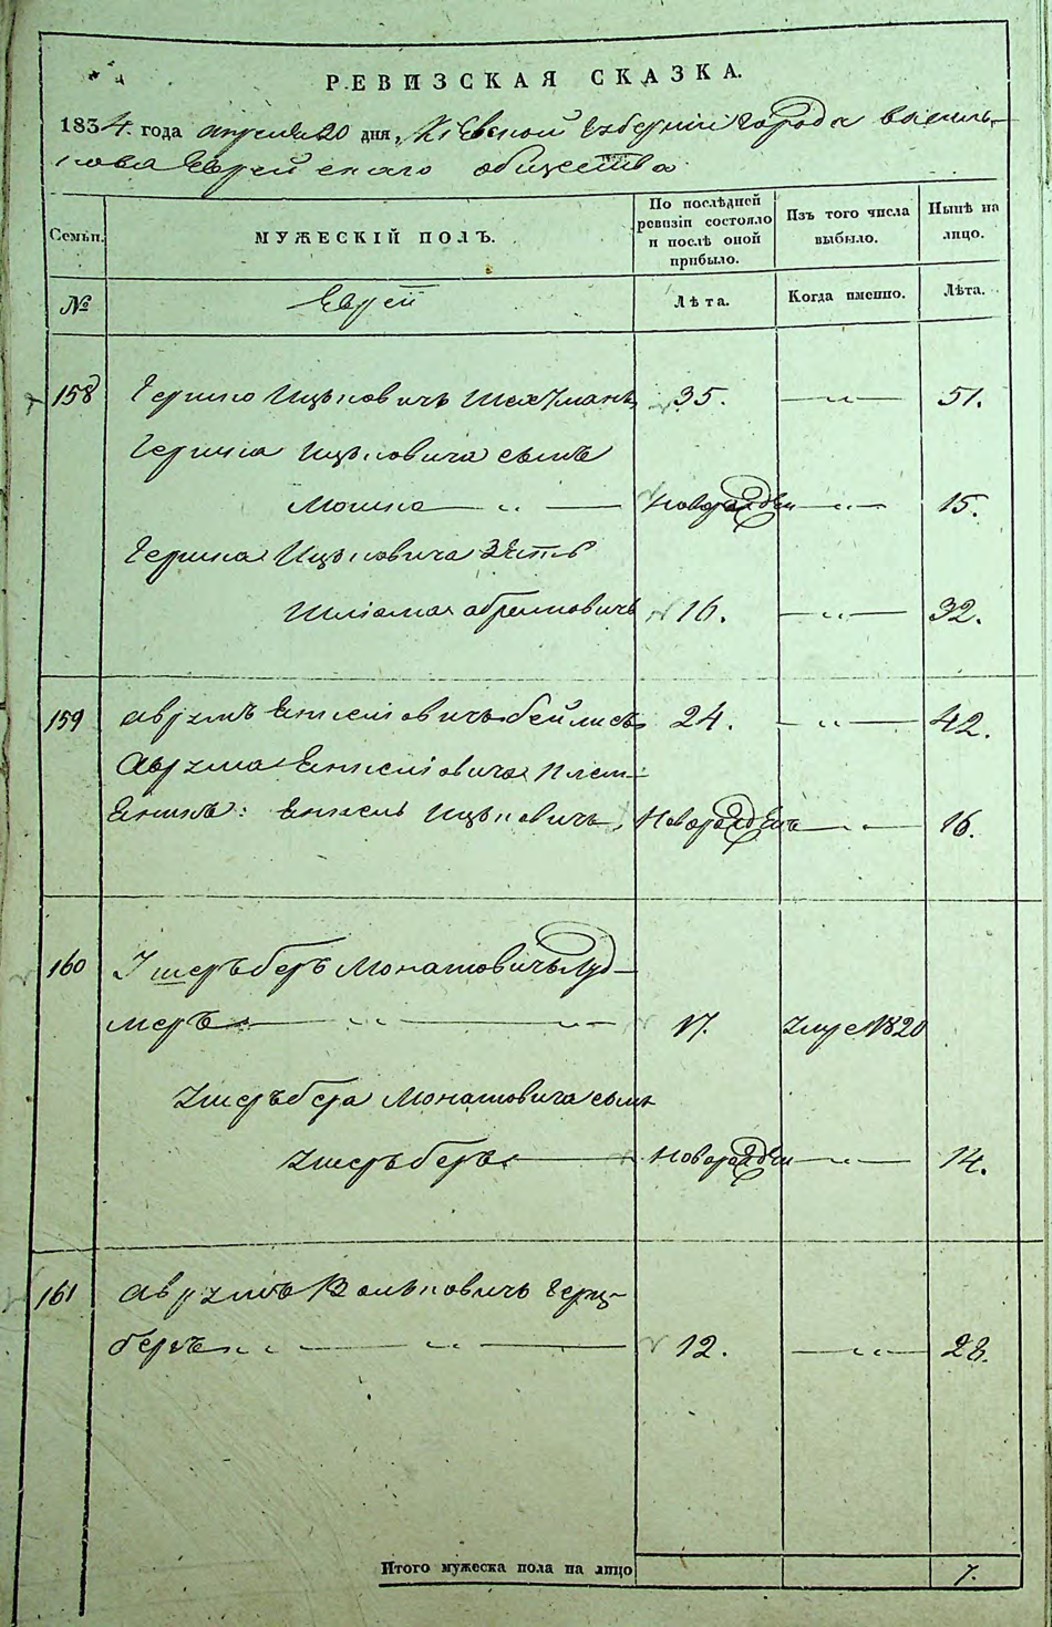 РЕВИЗСКАЯ СКАЗКА.
1834. года апреля 20 дня, Кіевской губерніи города Василь-
кова Еврейскаго общества
Семьи.
МУЖЕСКІЙ ПОЛЪ.
По послѣдней
ревизіи состояло
и послѣ оной
прибыло.
Изъ того числа
выбыло.
Нынѣ на
лицо.
№
Еврей
Лѣта.
Когда именно.
Лѣта.
158 Гершко Ицьковичъ 35. — „ — 51.
Гершка Ицьковича сынъ
Мошко — „ — Новорожден — „ — 15.
Гершка Ицьковича зять
Шліома Абрамовичъ 16. — „ — 32.
159 Аврумъ Енкелiовичъ Бейлисъ 24. — „ — 42.
Аврума Енкелiовича плем-
Енникъ: Енкель Ицьковичъ, Новорожденъ — „ — 16.
160 Умеръ 1820
Монашовича сынъ
Новорожден — „ — 14.
161 Аврумъ Вольковичъ Герц-
беръ — „ — „ — 12. — „ — 28.
Итого мужеска пола на лицо 7.